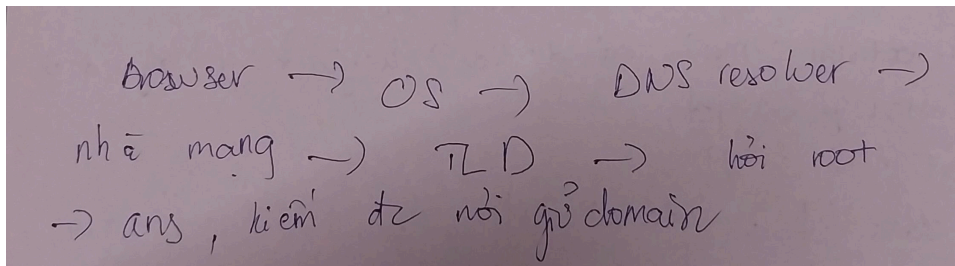 browser → OS → DNS resolver →
nhà mạng → TLD → hỏi root
→ ans, kiếm đc nơi giữ domain